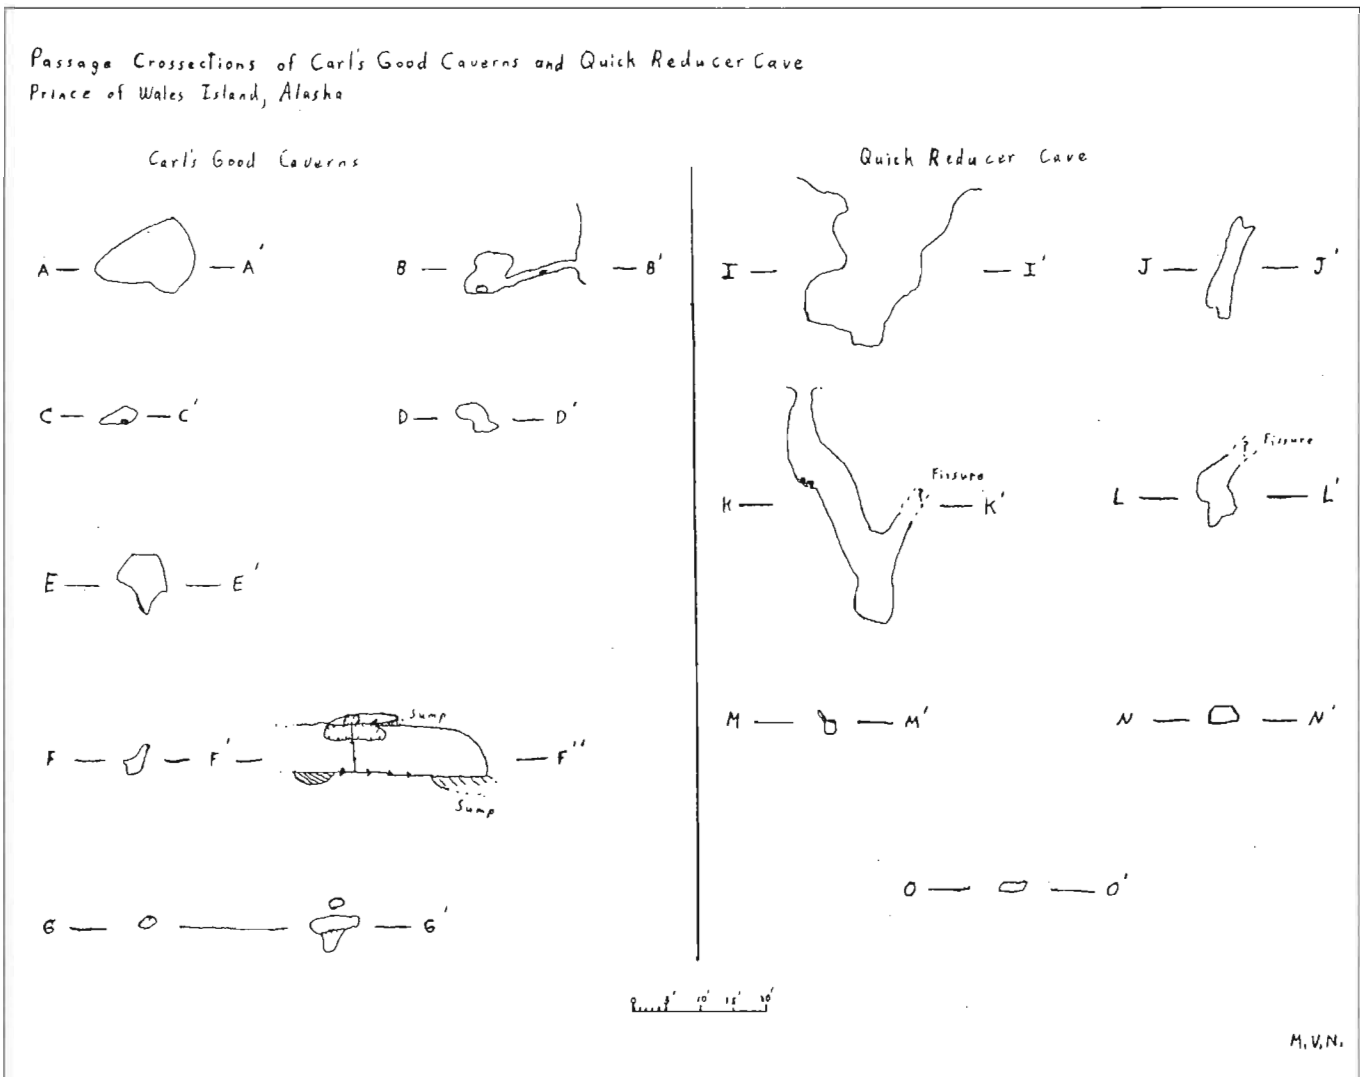 Passage Crossections of Carl's Good Caverns and Quick Reducer Cave
Prince of Wales Island, Alaska
Carl's Good Caverns
A A'
B B'
C C'
D D'
E E'
F F' F''
Sump
Sump
G G'
Quick Reducer Cave
I I'
J J'
K K'
Fissure
?
L L'
Fissure
?
M M'
N N'
O O'
0 5' 10' 15' 20'
M.V.N.